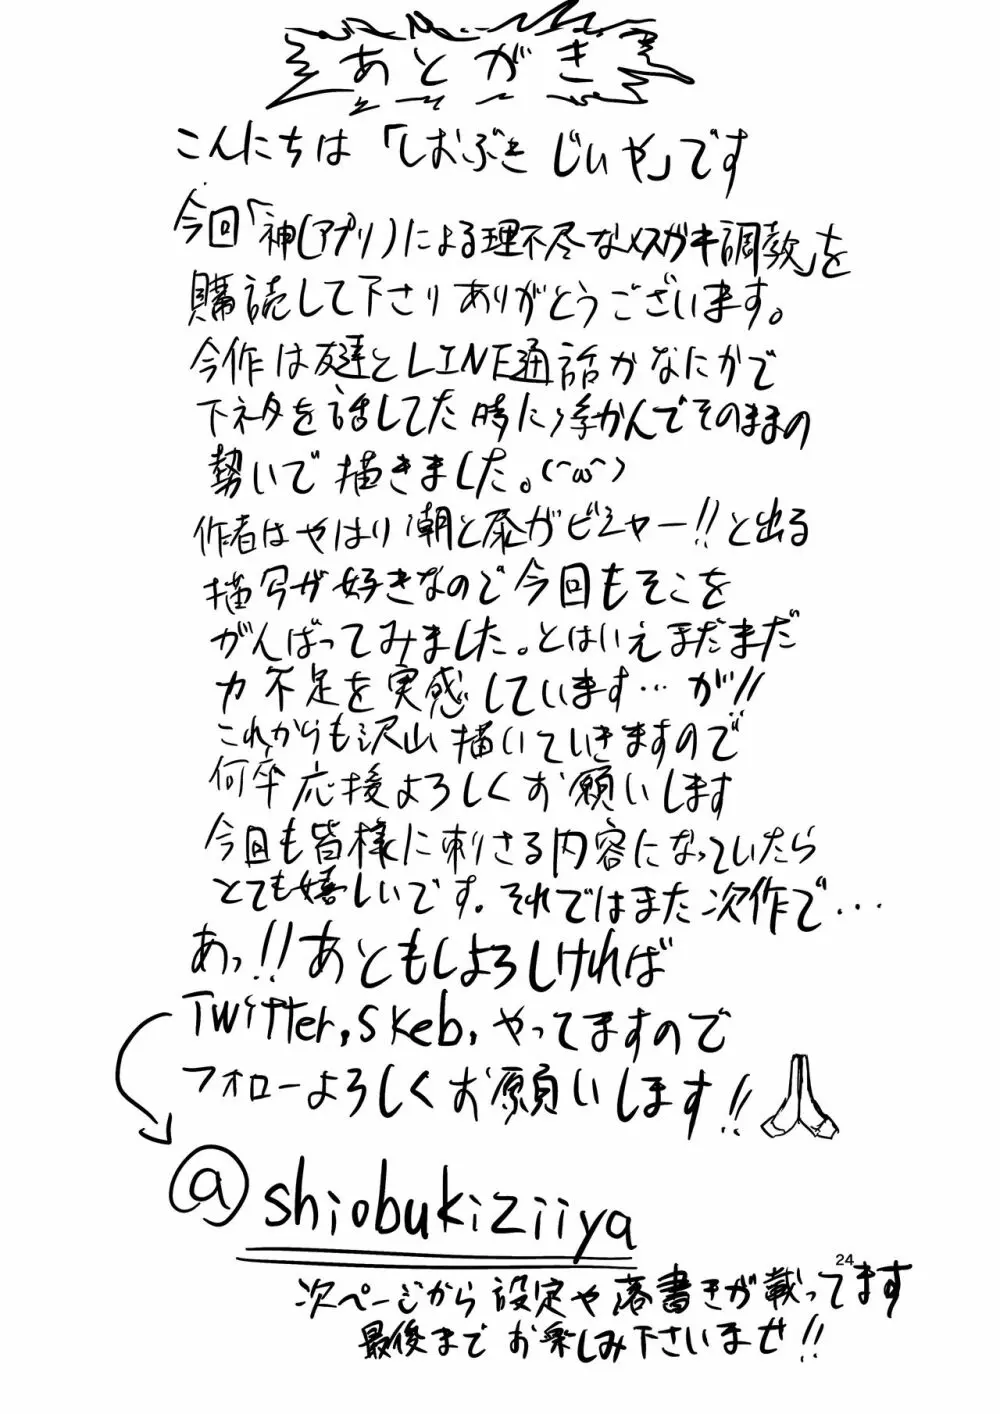 あとがき
こんにちは「しおぶき じいや」です
今回「神(アプリ)による理不尽なメスガキ調教」を
購読して下さりありがとうございます。
今作は友達とLINE通話かなにかで
下ネタを話してた時に浮かんでそのままの
勢いで描きました。(^ω^)
作者はやはり潮と尿がビシャー!!と出る
描写が好きなので今回もそこを
がんばってみました。とはいえまだまだ
力不足を実感しています…が!!
これからも沢山描いていきますので
何卒応援よろしくお願いします
今回も皆様に刺さる内容になっていたら
とても嬉しいです。それではまた次作で…
あっ!!あともしよろしければ
Twitter,Skeb,やってますので
フォローよろしくお願いします!!
@shiobukiziiya
24
次ページから設定や落書きが載ってます
最後までお楽しみ下さいませ!!